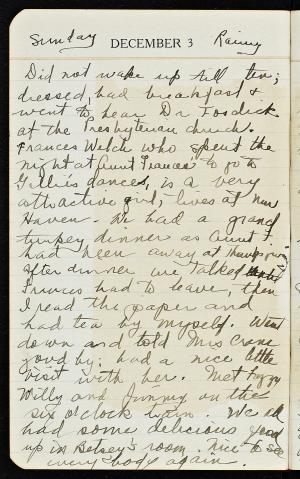 Sunday DECEMBER 3 Rainy
Did not wake up till ten;
dressed, had breakfast &
went to hear Dr Fosdick
at the Presbyterian church.
Frances Welch who spent the
night at Aunt Frances' to go to
Gillie's dances, is a very
attractive girl, lives at New
Haven. We had a grand
turkey dinner as Aunt F.
had been away at Thanksgiving.
After dinner we talked until
Frances had to leave, then
I read the paper and
had tea by myself. Went
down and told Mrs Crane
good by; had a nice little
visit with her. Met
Willy and Jimmy on the
six o'clock train. We all
had some delicious food
up in Betsey's room. Nice to see
every body again.